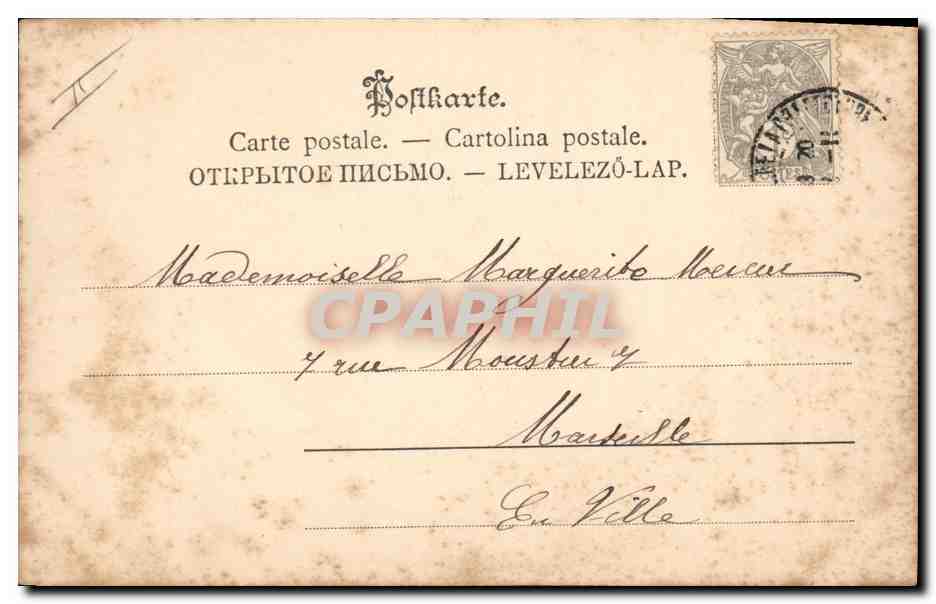 II
Postkarte.
Carte postale. — Cartolina postale.
ОТКРЫТОЕ ПИСЬМО. — LEVELEZŐ-LAP.
Mademoiselle Marguerite
CPAPHIL
7 rue 7
Marseille
En Ville
20